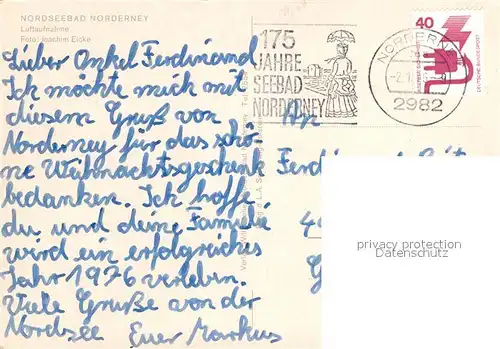 NORDSEEBAD NORDERNEY
Luftaufnahme
Foto: Joachim Eicke
Lieber Onkel Ferdinand
Ich möchte mich mit
diesem Gruß von
Norderney für das schö-
ne Weihnachtsgeschenk
bedanken. Ich hoffe
du und deine Famielie
wird ein erfolgreiches
Jahr 1976 verleben.
Viele Grüße von der
Nordsee Euer Markus
175
JAHRE
SEEBAD
NORDERNEY
NORDERNEY
2982
40
DEUTSCHE BUNDESPOST
An
Ferdinand
privacy protection
Datenschutz